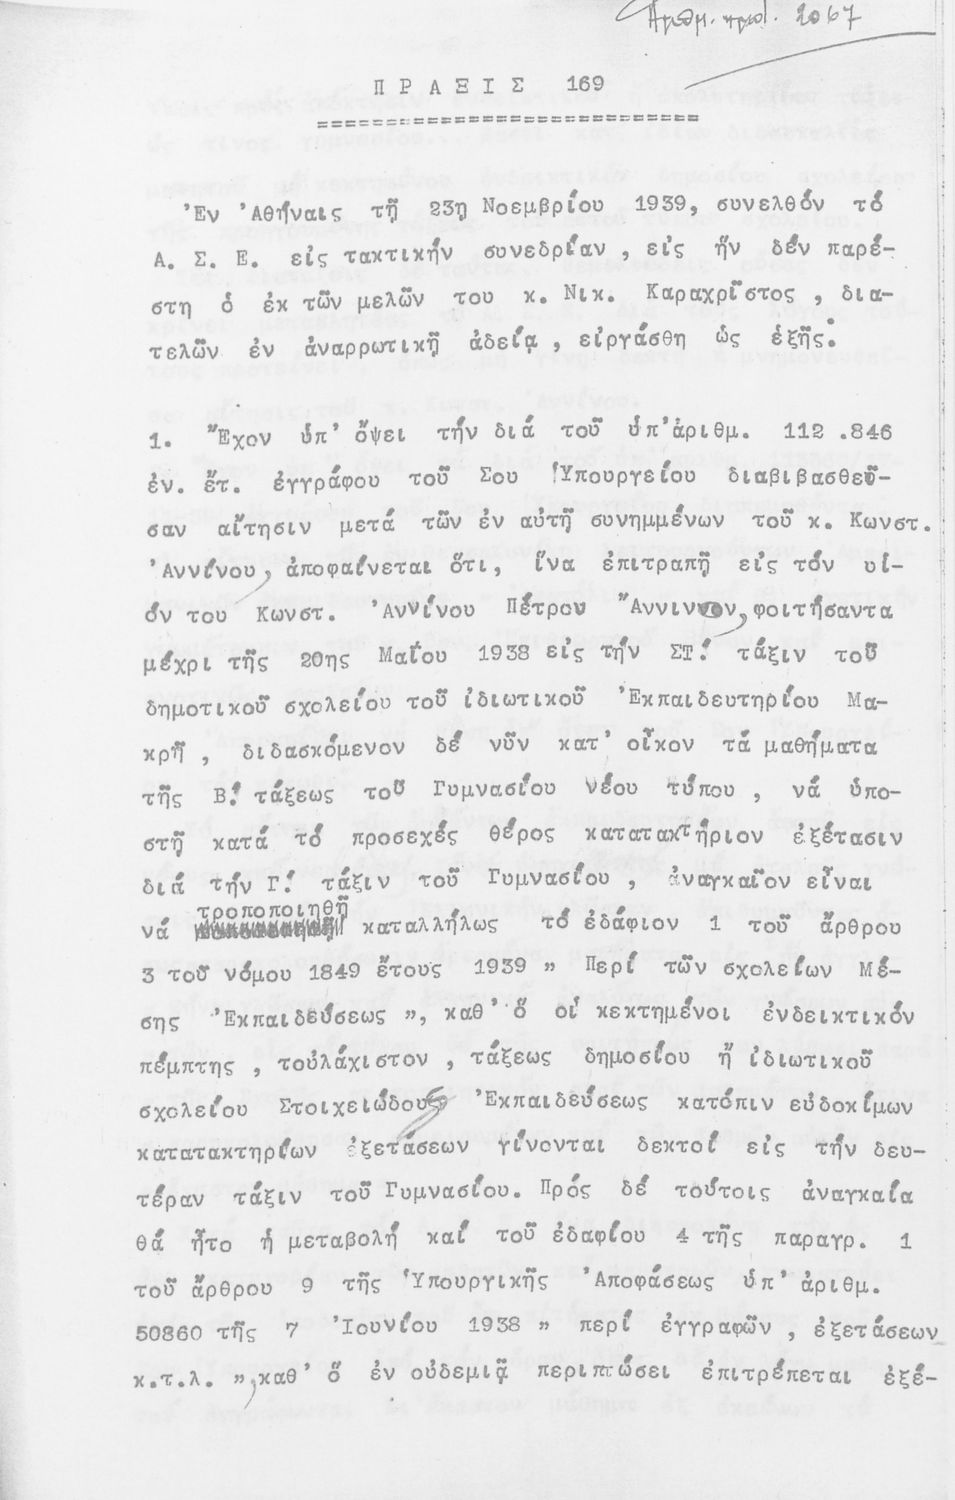 Αριθμ. πρωτ. 2067
ΠΡΑΞΙΣ 169
============================
Ἐν Ἀθήναις τῇ 23ῃ Νοεμβρίου 1939, συνελθόν τό
Α. Σ. Ε. εἰς τακτικήν συνεδρίαν , εἰς ἥν δέν παρέ-
στη ὁ ἐκ τῶν μελῶν του κ. Νικ. Καραχρῖστος , δια-
τελῶν ἐν ἀναρρωτικῇ ἀδείᾳ , εἰργάσθη ὡς ἑξῆς:
1. Ἔχον ὑπ' ὄψει τήν διά τοῦ ὑπ'ἀριθμ. 112 .846
ἐν. ἔτ. ἐγγράφου τοῦ Σου Ὑπουργείου διαβιβασθεῦ-
σαν αἴτησιν μετά τῶν ἐν αὐτῇ συνημμένων τοῦ κ. Κωνστ.
Ἀννίνου, ἀποφαίνεται ὅτι, ἵνα ἐπιτραπῇ εἰς τόν υἱ-
όν του Κωνστ. Ἀννίνου Πέτρον Ἄννινον, φοιτήσαντα
μέχρι τῆς 20ης Μαΐου 1938 εἰς τήν ΣΤ΄. τάξιν τοῦ
δημοτικοῦ σχολείου τοῦ ἰδιωτικοῦ Ἐκπαιδευτηρίου Μα-
κρῆ , διδασκόμενον δέ νῦν κατ' οἶκον τά μαθήματα
τῆς Β΄. τάξεως τοῦ Γυμνασίου νέου τύπου , νά ὑπο-
στῇ κατά τό προσεχές θέρος κατατακτήριον ἐξέτασιν
διά τήν Γ΄. τάξιν τοῦ Γυμνασίου , ἀναγκαῖον εἶναι
τροποποιηθῇ
νά καταλλήλως τό ἐδάφιον 1 τοῦ ἄρθρου
3 τοῦ νόμου 1849 ἔτους 1939 " Περί τῶν σχολείων Μέ-
σης Ἐκπαιδεύσεως ", καθ' ὅ οἱ κεκτημένοι ἐνδεικτικόν
πέμπτης , τοὐλάχιστον , τάξεως δημοσίου ἤ ἰδιωτικοῦ
σχολείου Στοιχειώδους Ἐκπαιδεύσεως κατόπιν εὐδοκίμων
κατατακτηρίων ἐξετάσεων γίνονται δεκτοί εἰς τήν δευ-
τέραν τάξιν τοῦ Γυμνασίου. Πρός δέ τούτοις ἀναγκαία
θά ἦτο ἡ μεταβολή καί τοῦ ἐδαφίου 4 τῆς παραγρ. 1
τοῦ ἄρθρου 9 τῆς Ὑπουργικῆς Ἀποφάσεως ὑπ' ἀριθμ.
50860 τῆς 7 Ἰουνίου 1938 " περί ἐγγραφῶν , ἐξετάσεων
κ.τ.λ. ", καθ' ὅ ἐν οὐδεμιᾷ περιπτώσει ἐπιτρέπεται ἐξέ-